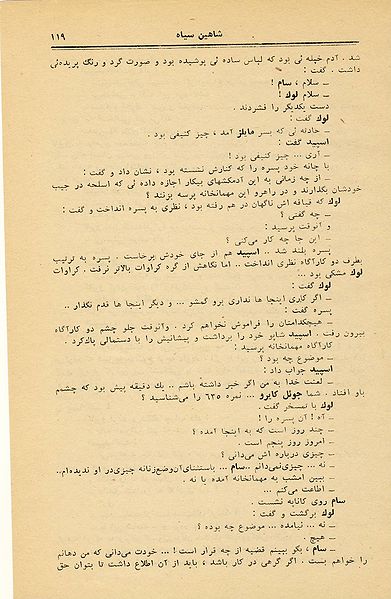 شاهین سیاه ۱۱۹
شد . آدم خپله ئی بود که لباس ساده ئی پوشیده بود و صورت گرد و رنگ پریده‌ئی
داشت . گفت :
ــ سلام ، سام !
ــ سلام لوك !
دست یکدیگر را فشردند .
لوك گفت :
ــ حادثه ئی که بسر مایلز آمد ، چیز کثیفی بود .
اسپید گفت :
ــ آری ... چیز کثیفی بود !
با چانه خود پسره را که کنارش نشسته بود ، نشان داد و گفت :
ــ از چه زمانی به این آدمکشهای بیکار اجازه داده ئی که اسلحه در جیب
خودشان بگذارند و در راهرو این مهمانخانه پرسه بزنند ؟
لوك که قیافه اش ناگهان در هم رفته بود ، نظری به پسره انداخت و گفت :
ــ چه گفتی ؟
و آنوقت پرسید :
ــ این جا چه کار می‌کنی ؟
پسره بلند شد .. اسپید هم از جای خودش برخاست . پسره به ترتیب
بطرف دو کارآگاه نظری انداخت .. اما نگاهش از گره کراوات بالاتر نرفت . کراوات
لوك مشکی بود ...
لوك گفت :
ــ اگر کاری اینجا ها نداری برو گمشو ... و دیگر اینجا ها قدم نگذار ..
پسره گفت :
ــ هیچکدامتان را فراموش نخواهم کرد . وآنوقت جلو چشم دو کارآگاه
بیرون رفت . اسپید شاپو خود را برداشت و پیشانیش را با دستمالی پاك‌کرد .
کارآگاه مهمانخانه پرسید :
ــ موضوع چه بود ؟
اسپید جواب داد :
ــ لعنت خدا به من اگر خبر داشته باشم .. یك دقیقه پیش بود که چشمم
باو افتاد . شما جوئل کایرو ... نمره ۶۳۵ را می‌شناسید ؟
لوك با تمسخر گفت :
ــ آه ! آن پسره را !
ــ چند روز است که به اینجا آمده ؟
ــ امروز روز پنجم است .
ــ چیزی درباره اش می‌دانی ؟
ــ نه ... چیزی‌نمی‌دانم ..سام ... باستثنای‌آن‌وضع‌زنانه چیزی‌در او ندیده‌ام..
ــ ببین امشب به مهمانخانه آمده یا نه .
ــ اطاعت می‌کنم ...
سام روی کاناپه نشست .
لوك برگشت و گفت :
ــ نه ... نیامده ... موضوع چه بوده ؟
ــ هیچ .
ــ سام ، بگو ببینم قضیه از چه قرار است ! ... خودت می‌دانی که من دهانم
را خواهم بست . اگر گرهی در کار باشد ، باید از آن اطلاع داشت تا بتوان حق